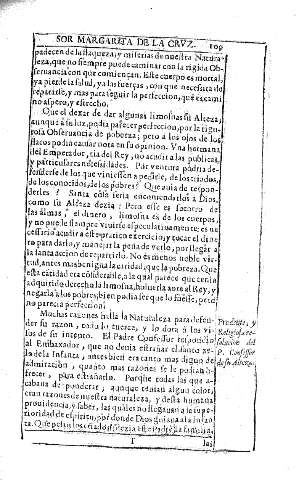 SOR MARGARITA DE LA CRVZ. 109
padecen de la flaqueza, y miserias de nuestra Natura-
leza, que no siempre puede caminar con la rigida Ob-
seruancia con que comiençan. Este cuerpo es mortal,
ya pierde la salud, ya las fuerças, con que necessita de
repararse, y mas para seguir la perfeccion, que es cami-
no aspero, y estrecho.
Que el dexar de dar algunas limosnas su Alteza,
aunque à su luz, podia parecer perfeccion, por la rigu-
rosa Obseruancia de pobreza; pero a los ojos de los
flacos podia causar nota en su opinion. Vna hermana
del Emperador, tia del Rey, no acudir a las publicas,
y particulares necessidades. Por ventura podria de-
fenderse de los que viniessen a pedirle, de los criados,
de los conocidos, de los pobres? Que auia de respon-
derles? Santa cosa seria encomendarlos a Dios,
como su Alteza dezia; Pero esse es socorro de
las almas, el dinero, limosna es de los cuerpos,
y no puede siempre viuirse especulatiuamente: es ne-
cessario acudir a este practico exercicio, y tocar el dine-
ro para darlo, y manejar la pena de verlo, por llegar a
la santa accion de repartirlo. No es menos noble vir-
tud, antes mas benigna la caridad, que la pobreza. Que
esta caridad era considerable, a la qual parece que tenia
adquirido derecho la limosna, boluerla aora al Rey, y
negarla a los pobres, bien podia ser que lo fuesse, pero
no parecia perfeccion.
Muchas razones halla la Naturaleza para defen-
der su razon, todo lo tuerce, y lo dora a los vi-
sos de su intento. El Padre Confessor respondiò
al Embaxador, que no denia estrañar el santo ze-
lo de la Infanta, antes bien era tanto mas digno de
admiracion, quanto mas razones se le podian o-
frecer, para estrañarlo. Porque todas las que a-
cabaua de ponderar, aunque tenian algun color,
eran razones de nuestra naturaleza, y desta humana
prouidencia, y saber, las quales no llegauan a la supe-
rioridad de espiritu, por donde Dios guiaua a la Infan-
Prudente, y
Religiosa re-
solucion del
P. Confessor
de su Alteza.
I
las